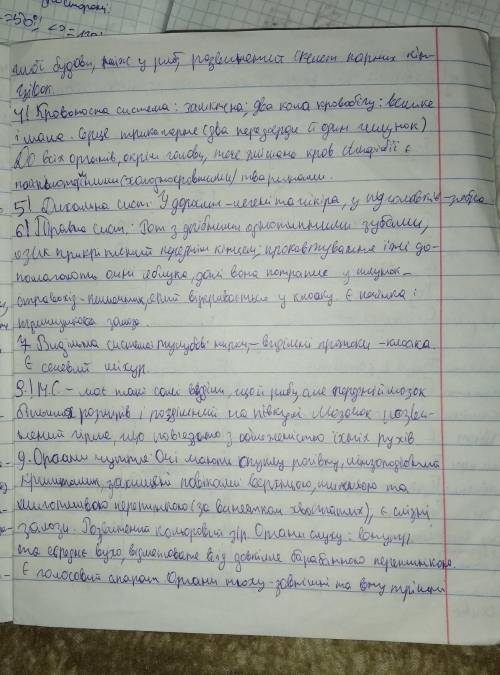 шої будови, ніж у риб, розвинений скелет парних кін-
цівок.
4) Кровоносна система: замкнена; два кола кровообігу: велике
і мале. Серце трикамерне (два передсердя й один шлунок)
До всіх органів, окрім голови, тече мішана кров Амфібії є
пойкілотермними (холоднокровними) тваринами.
5) Дихальна сист: У дорослих - легені та шкіра, у пуголовків - зябра
6) Травна сист.: Рот з дрібними однотипними зубами,
язик прикріплений переднім кінцем; проковтування їжі до-
помагають очні яблука, далі вона потрапляє у шлунок -
стравохід - кишечник, який відкривається у клоаку. Є печінка і
підшлункова залоза.
7. Видільна система: тулубові нирки, - видільні протоки - клоака.
Є сечовий міхур.
8.) Н.С - має такі самі відділи, що й риби, але передній мозок
більших розмірів і розділений на півкулі Мозочок розви-
нений гірше, що пов'язано з обмеженістю їхніх рухів
9. Органи чуття: Очі мають опуклу рогівку, лінзоподібний
кришталик, захищені повіками верхньою, нижньою та
мигативною перетинкою (за винятком хвостатих), є слізні
залози. Розвинений кольоровий зір. Органи слуху: внутр.
та середнє вухо, відмежоване від довкілля барабанною перетинкою.
Є голосовий апарат Органи нюху - зовнішні та внутрішні